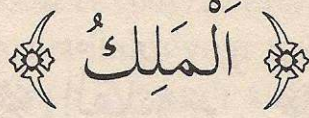 اَلْمَلِكُ